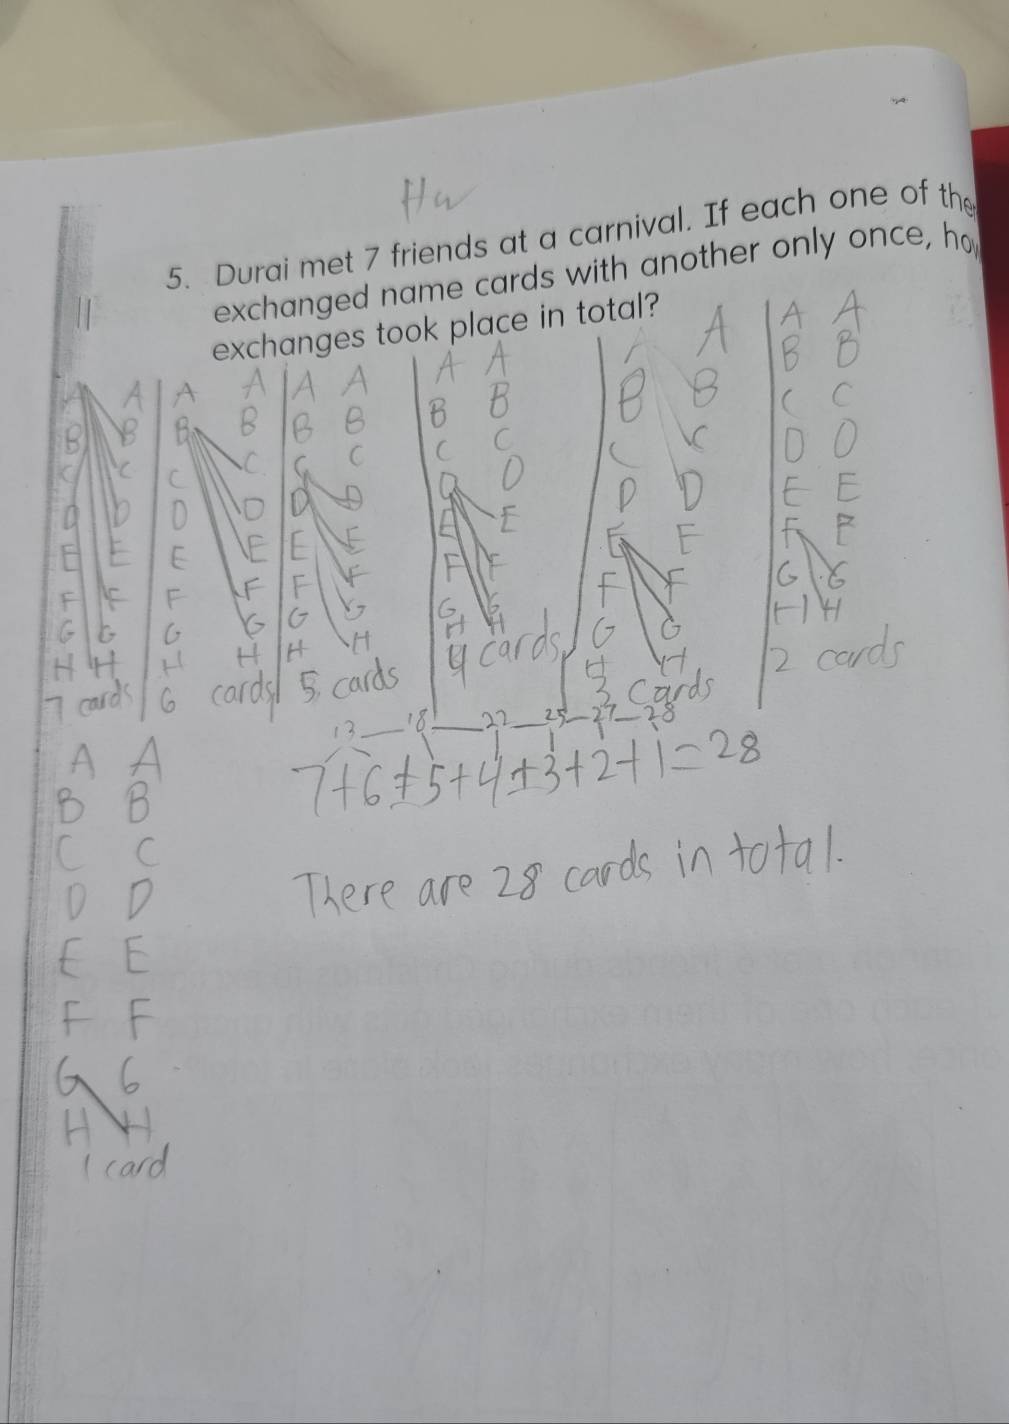 Hw
5. Durai met 7 friends at a carnival. If each one of the
exchanged name cards with another only once, ho
exchanges took place in total?
A A A A A A A A A A A A
B B B B B B B B B B B B
C C C C C C C C C C C C
D D D D D D D D D D D D
E E E E E E E E E E E E
F F F F F F F F F F F F
G G G G G G G G G G G G
H H H H H H H H H H H H
7 cards 6 cards 5 cards 4 cards 3 cards 2 cards
13 18 22 25 27 28
7+6+5+4+3+2+1=28
There are 28 cards in total.
A A
B B
C C
D D
E E
F F
G G
H H
1 card